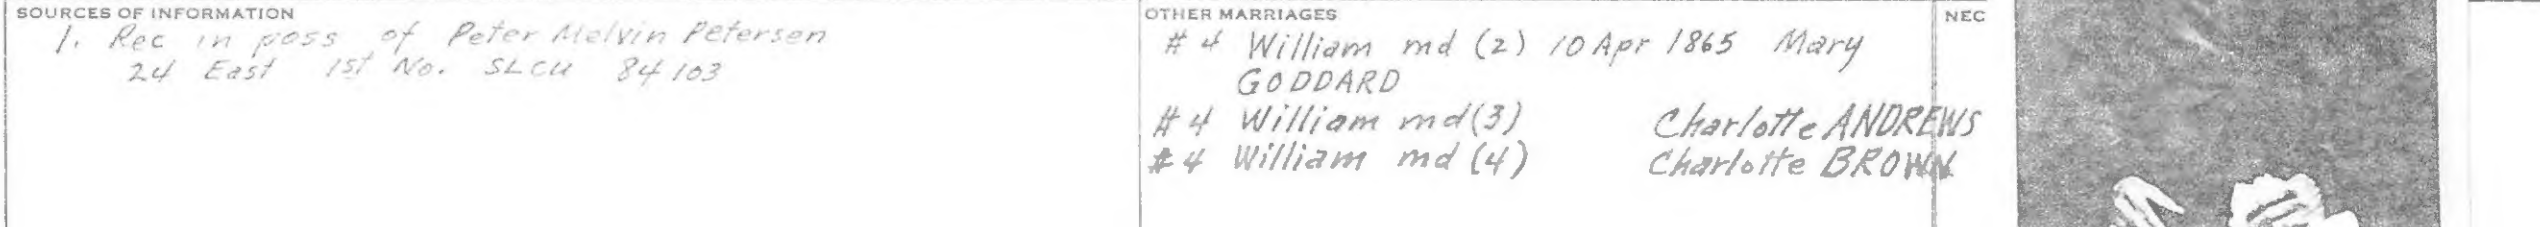 SOURCES OF INFORMATION
1. Rec in poss of Peter Melvin Petersen
24 East 1st No. SLCU 84103
OTHER MARRIAGES
#4 William md (2) 10 Apr 1865 Mary
GODDARD
#4 William md (3) Charlotte ANDREWS
#4 William md (4) Charlotte BROWN
NEC